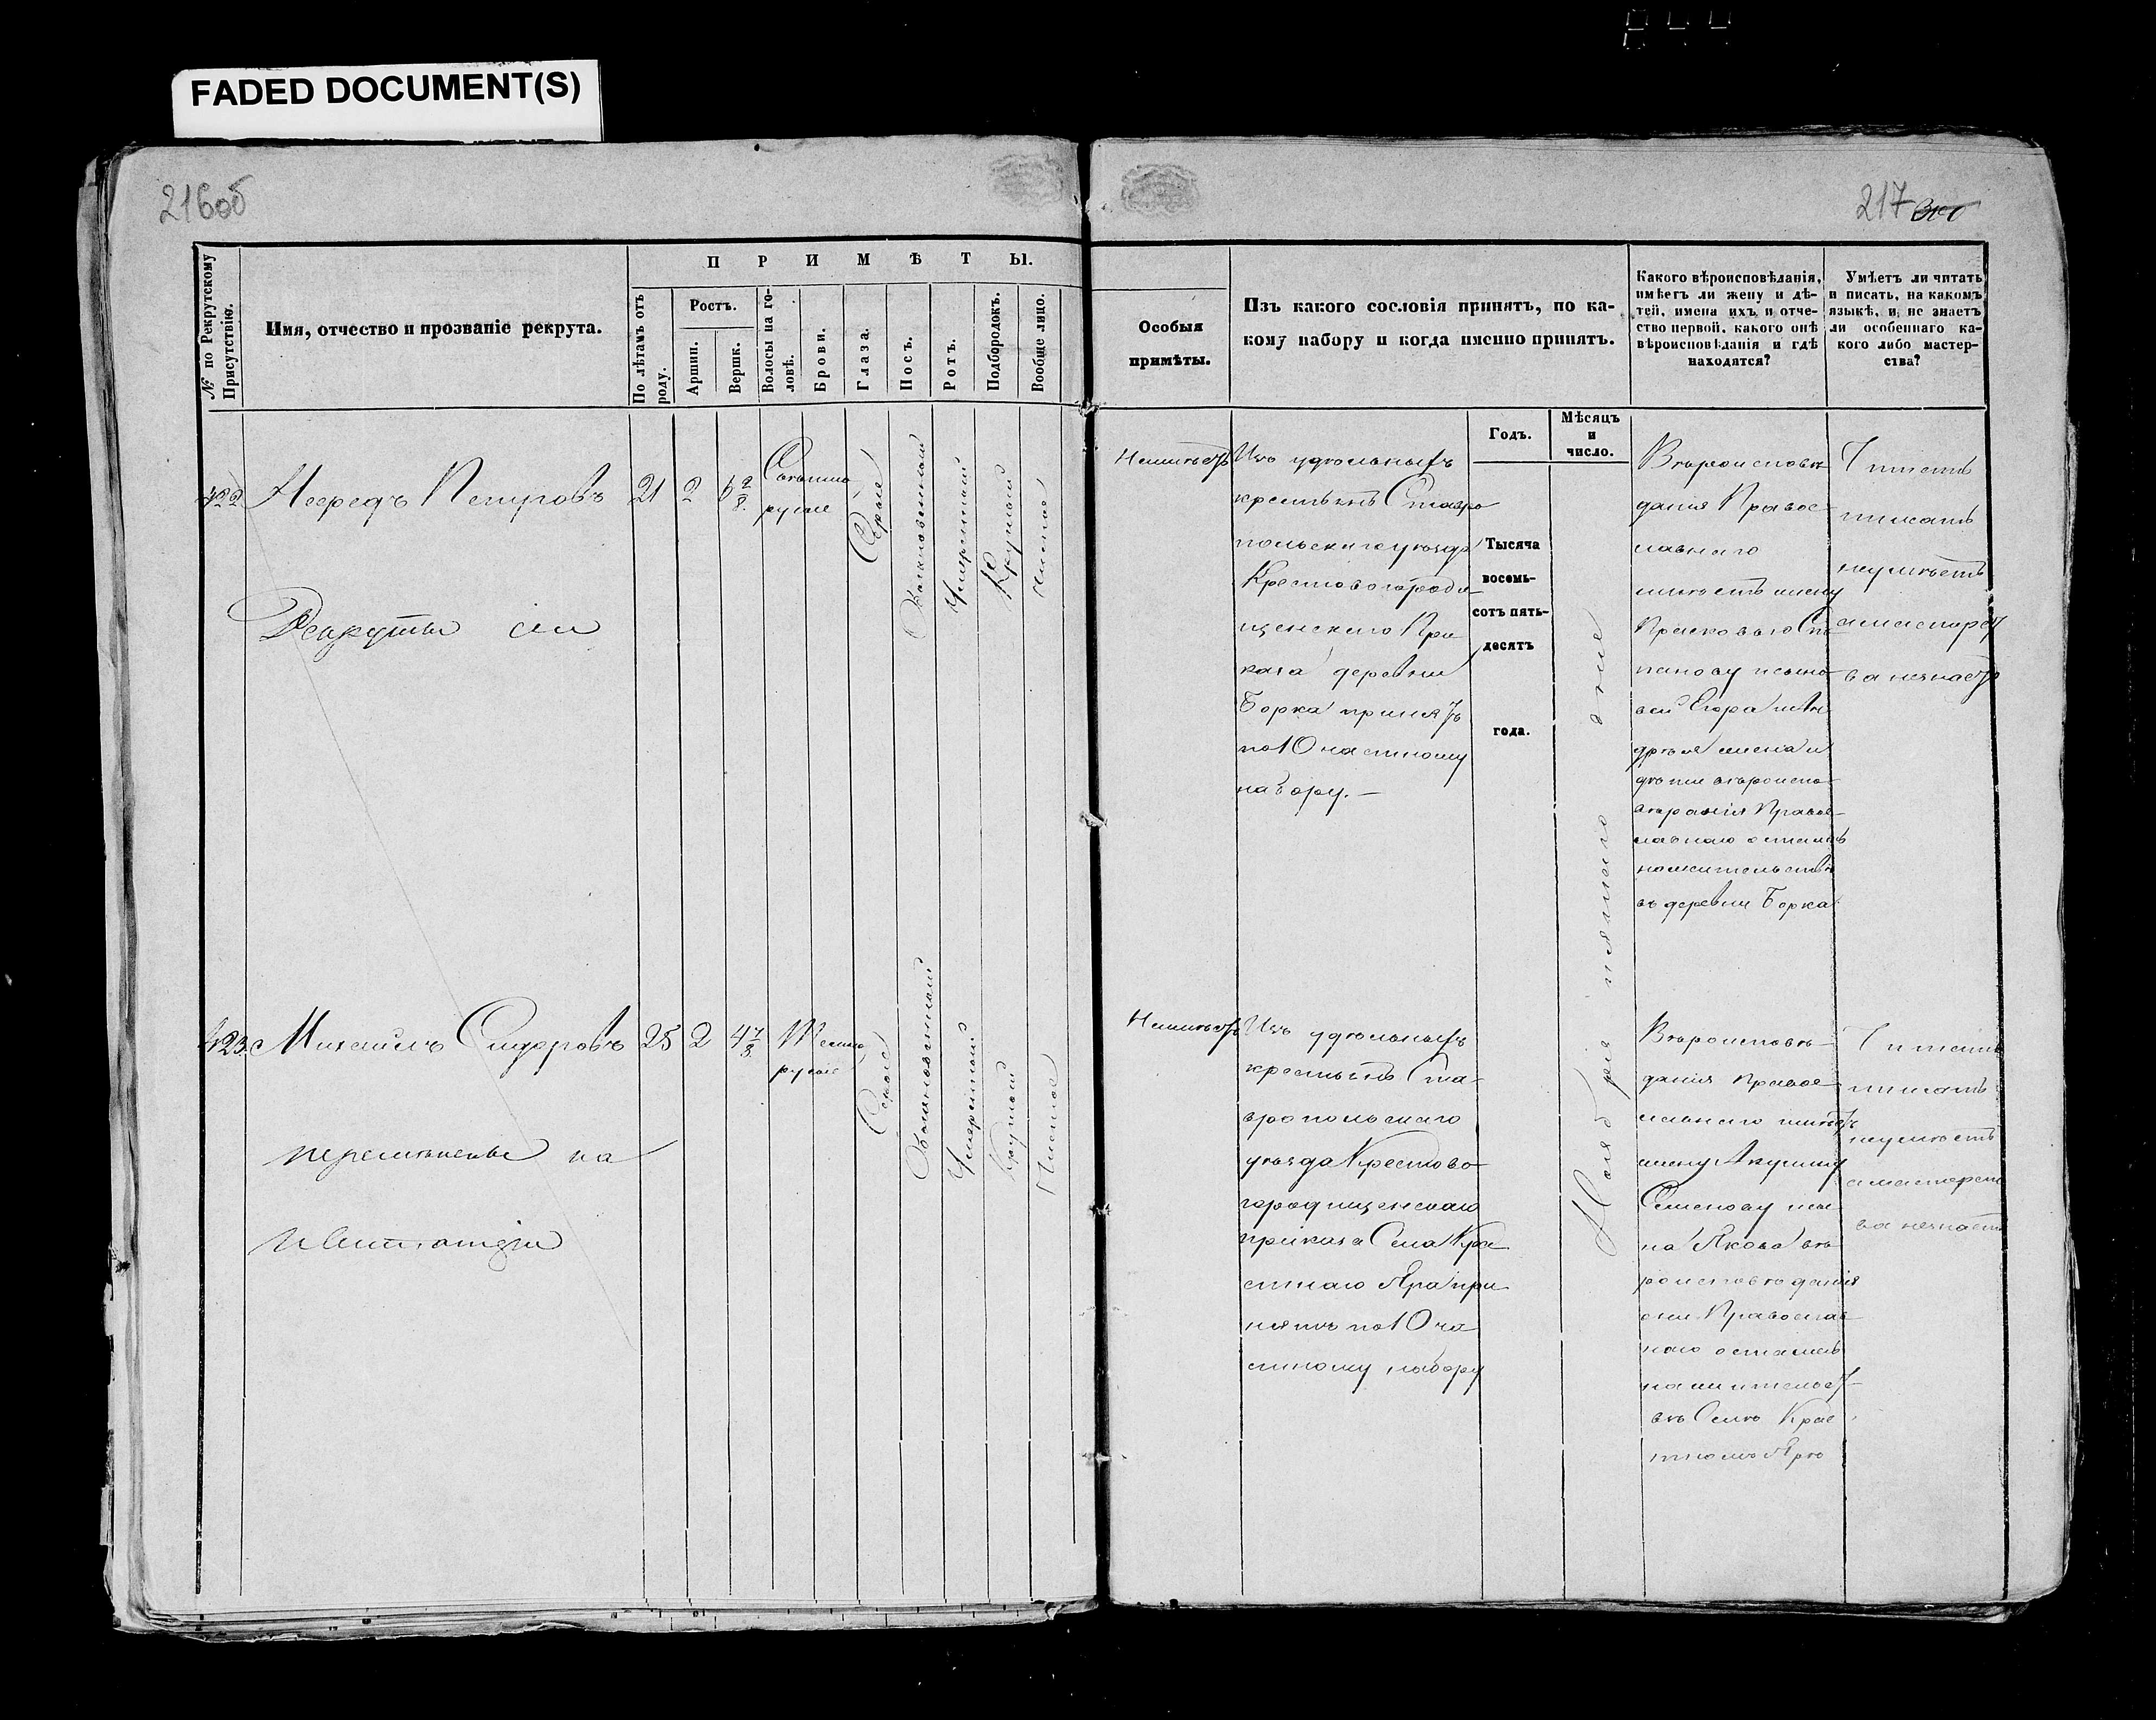 FADED DOCUMENT(S)
216об
217
№ по Рекрутскому Присутствію.
Имя, отчество и прозваніе рекрута.
ПРИМѢТЫ.
По лѣтамъ отъ роду.
Ростъ.
Аршин.
Вершк.
Волосы на головѣ.
Брови.
Глаза.
Носъ.
Ротъ.
Подбородокъ.
Вообще лицо.
Особыя
примѣты.
Изъ какого сословія принятъ, по ка-
кому набору и когда именно принятъ.
Какого вѣроисповѣданія,
имѣетъ ли жену и дѣ-
тей, имена ихъ и отче-
ство первой, какого онѣ
вѣроисповѣданія и гдѣ
находятся?
Умѣетъ ли читать
и писать, на какомъ
языкѣ, и не знаетъ
ли особеннаго ка-
кого либо мастер-
ства?
Годъ.
Мѣсяцъ
и
число.
Тысяча
восемь-
сотъ пять-
десятъ
года.
Ноября пятаго дня
422
Петровъ
21
2
6 2/8
Свѣтло
русые
Сѣрые
Обыкновенный
Умѣренный
Круглый
Чистое
Рекруты
Неимѣетъ
Изъ удѣльныхъ
крестьянъ Ставро
польскаго уѣзда
Крестовогороди
щенскаго При
каза деревни
Борка принятъ
по 10 частному
набору. —
Вѣроисповѣ
данія Правос
лавнаго
имѣетъ жену
Прасковью Сте
панову и сыно
вей Егора и Ан
дрея жена и
дѣти вѣроиспо
вѣданія Правос
лавнаго остались
на жительствѣ
въ деревни Борка
Читать
писать
неумѣетъ
а мастерст
ва незнаетъ
423.
Михаилъ Сидоровъ
25
2
4 7/8
Темно
русые
Сѣрые
Обыкновенный
Умѣренный
Круглый
Чистое
на
Неимѣетъ
Изъ удѣльныхъ
крестьянъ Ста-
вропольскаго
уѣзда Крестово
городищенскаго
приказа Села Кре
стнаго Яра при
нятъ по 10 ча
стному набору
Вѣроисповѣ-
данія Правос
лавнаго имѣетъ
жену Акулину
Семенову сы
на Якова вѣ
роисповѣданія
они Православ
наго остались
на жительст
въ Селѣ Крес
тномъ Яру
Читать
писать
неумѣетъ
а мастерст
ва незнаетъ